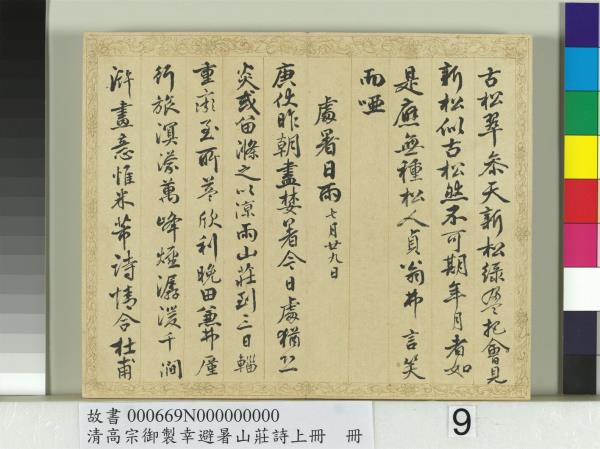 古松翠參天新松綠盈把會見
新松似古松然不可期年月者如
是應無種松人貞翁弗言笑
而啞
處暑日雨 七月廿九日
庚伏昨朝盡婪暑今日處猶恐
炎或留滌之以涼雨山莊到三日輜
重至所益欣利晚田兼弗廑
行旅溟濛萬峰煙潺湲千澗
滸畫意惟米芾詩情合杜甫
故書 000669N000000000
清高宗御製幸避暑山莊詩上冊 冊
9